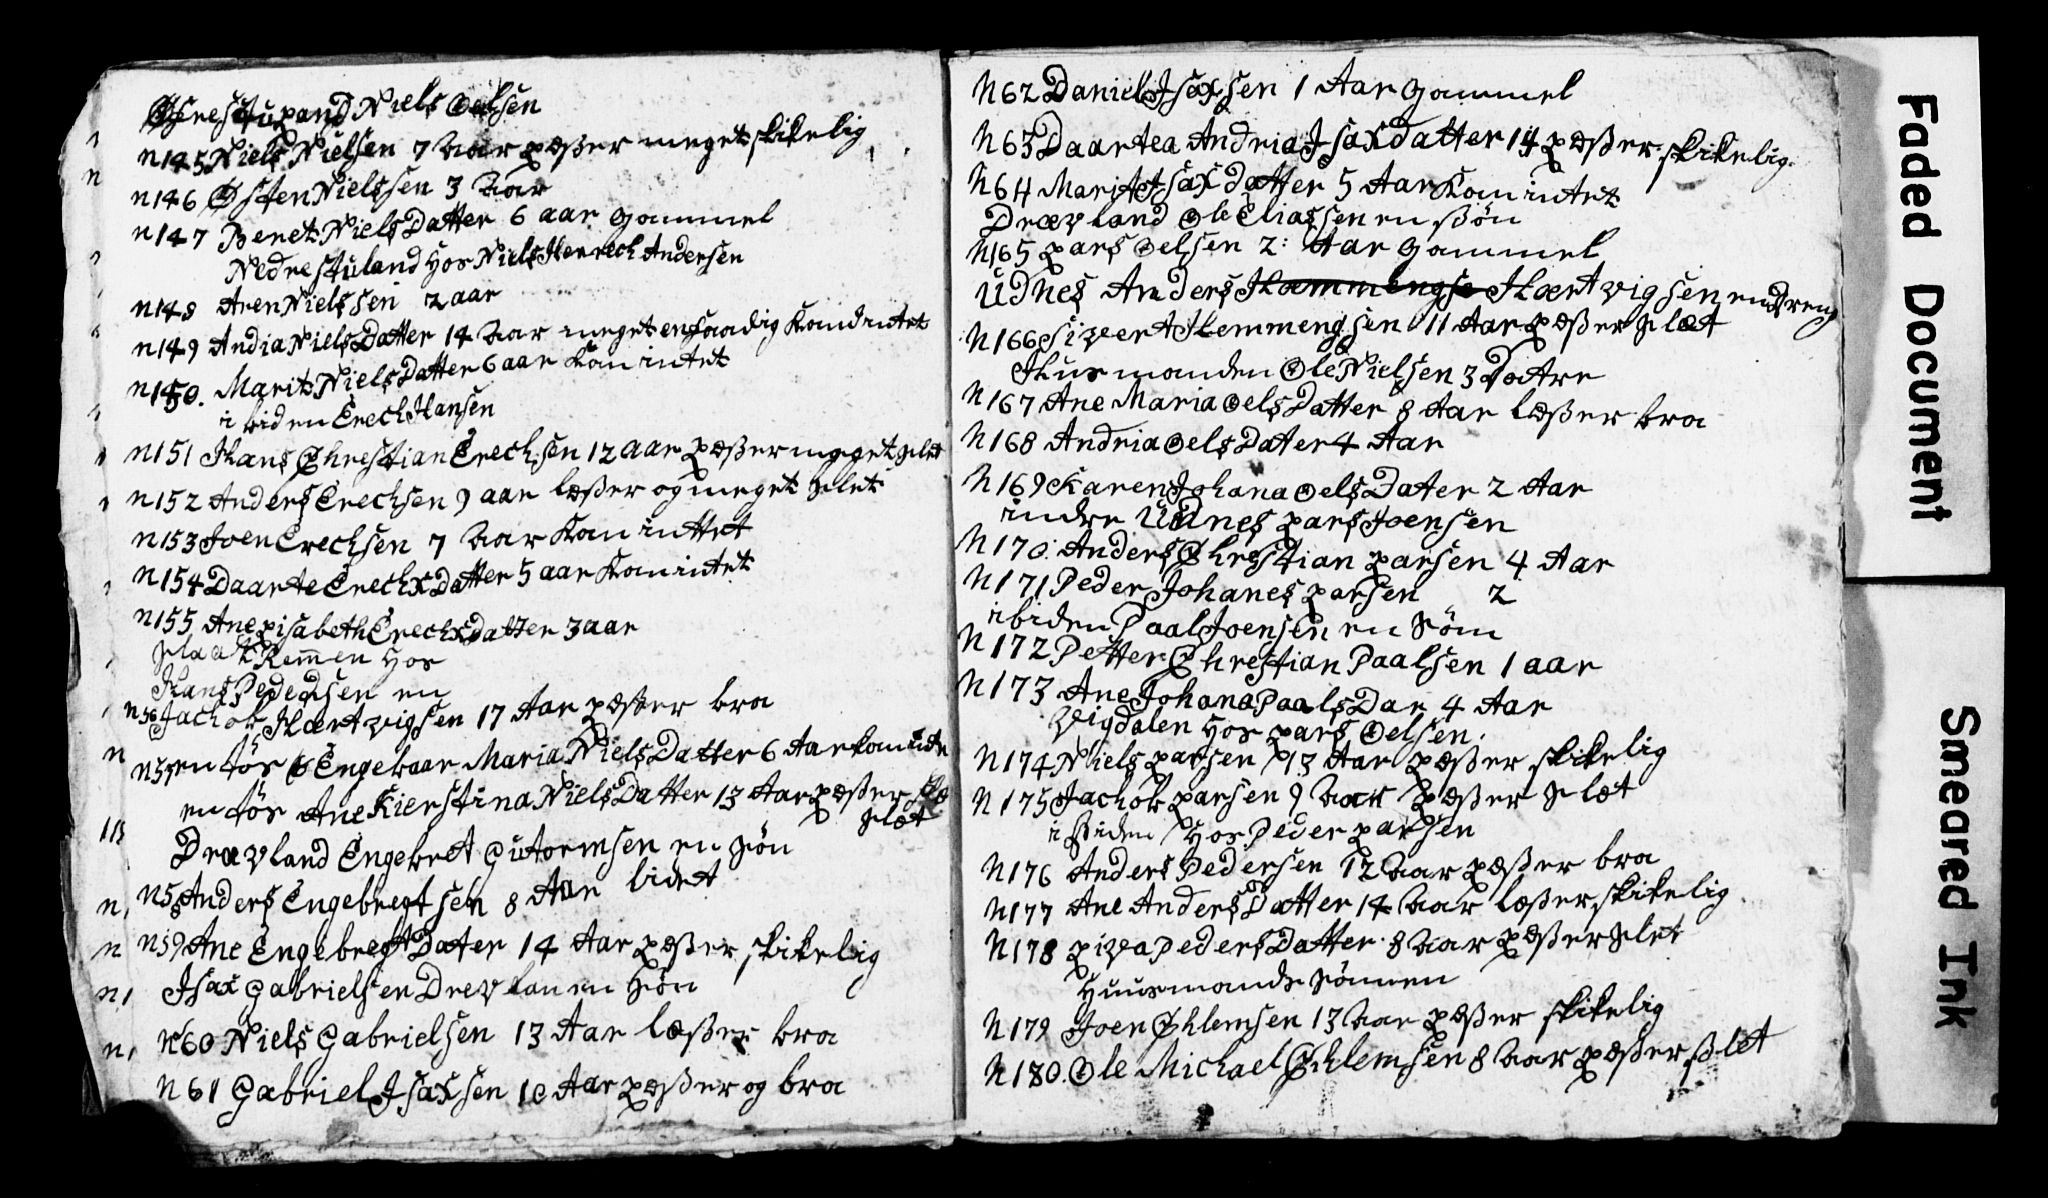 Øfrestupand Niels Oelsen
n145 Niels Nielsen 7 Aar pæßer meget skikelig
n146 Østen Nielssen 3 Aar
n147 Beret Niels Datter 6 aar gammel
Nedrestuland Hos Niels Henrech Andersen
n148 Aren Nielssen 2 aar
n149 Andia Niels Datter 14 Aar meget ensaadig Kand intet
n150. Marit Niels Datter 6 aar Kan intet
ibiden Erech Hansen
n151 Hans Christian Erechsen 12 aar pæßer meget slet
n152 Anders Erechsen 9 aar læßer og meget slet
n153 Joen Erechsen 7 Aar Kan inttet
n154 Daarte Erechx Datter 5 aar Kan intet
n155 Ane pisabeth Erechxdatter 3 aar
Slaat Remen Hos
Hans Pedersen en
n56 Jachob Hartvigsen 17 Aar pæßer bra
n57 en tøs Engebaar Maria Niels Datter 6 Aar kan
en tøs Ane Kierstina Niels Datter 13 Aar pæßer
slæt
Drævland Engebret Gutormsen en søn
n58 Anders Engebregtsen 8 Aar lidet
n59 Ane Engebregt Dater 14 Aar pæßer skikelig
Jsax Gabrielsen Drevlan en Søn
n60 Niels Gabrielsen 13 Aar læßer bra
n61 Gabriel Jsaxsen 10 Aar pæßer og bra
N62 Daniel Jsaxsen 1 Aar gammel
N63 Daartea Andria Jsaxdatter 14 pæßer skikelig.
N64 Marit Jsaxdatter 5 Aar Kan intet
Drævland Ole Eliassen en søn
N165 pars Oelsen 2: Aar gammel
Udnes Anders Hammengse Hartvigsen en dreng
N166 Sivert Hemmengsen 11 Aar pæßer slæt
Husmanden Ole Nielsen 3 Døtre
N167 Ane Maria Oels Datter 8 Aar læßer bra
N168 Andria Oels Dater 4 Aar
N169 Karen Johana Oels Dater 2 Aar
indre Udnes pars Joensen
N170. Anders Christian parsen 4 Aar
N171 Peder Johanes parsen 2
ibiden Paal Joensen en Søn
N172 Petter Christian Paalsen 1 aar
N173 Ane Johana Paals Dar 4 Aar
Vigdalen Hos pars Oelsen.
N174 Niels parsen 13 Aar pæßer skikelig
N175 Jachob parsen 9 Aar pæßer slæt
ibiden Hos Peder parsen
N176 Anders Pedersen 12 Aar pæßer bra
N177 Ane Anders Datter 14 Aar læßer skikelig
N178 piva Peders Datter 8 Aar pæßer slet
Huusmands Sønnen
N179 Joen Chlemsen 13 Aar pæßer skikelig
N180. Ole Michael Chlemsen 8 Aar pæßer slet
Faded Document
Smeared Ink